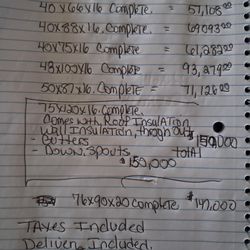 40x66x16 Complete. = 57,108.00
40x88x16. Complete. = 69093.20
40x75x16 Complete = 61,282.20
43x100x16 Complete = 93,279.00
50x87x16 Complete. = 71,126.00
75x120x16. Complete.
Comes with, Roof Insulation
Wall Insulation, through out
- Gutters $150,000
- Down, Spouts total
$150,000
76x90x20 Complete $147,000
TAXES Included
Delivery Included.